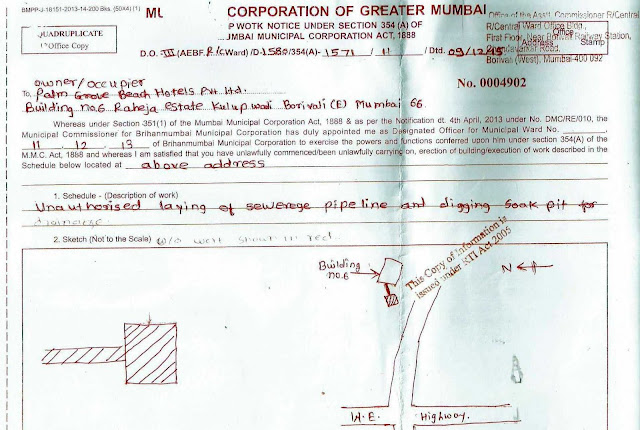 BMPP-J-18151-2013-14-200 Bks. (50X4) (1)
ML
CORPORATION OF GREATER MUMBAI
QUADRUPLICATE
Office Copy
P WOTK NOTICE UNDER SECTION 354 (A) OF
JMBAI MUNICIPAL CORPORATION ACT, 1888
Office of the Asstt. Commissioner R/Central
R/Central Ward Office Bldg.,
Office
First Floor, Near Borivali Railway Station,
Address Stamp
Borivali (West), Mumbai-400 092
D.O. III (AEBF R/C Ward) /D-1580/354(A)- 1571 / 11 / Dtd. 09/12/15
No. 0004902
owner/occupier
To, Palm Grove Beach Hotels Pvt. Ltd.
Building no.6 Raheja Estate Kulupwadi Borivali (E) Mumbai 66.
Whereas under Section 351(1) of the Mumbai Municipal Corporation Act, 1888 & as per the Notification dt. 4th April, 2013 under No. DMC/RE/010, the
Municipal Commissioner for Brihanmumbai Municipal Corporation has duly appointed me as Designated Officer for Municipal Ward No.
11 12 13 of Brihanmumbai Corporation to exercise the powers and functions conferred upon him under section 354(A) of the
M.M.C. Act, 1888 and whereas I am satisfied that you have unlawfully commenced/been unlawfully carrying on, erection of building/execution of work described in the
Schedule below located at above address
1. Schedule - (Description of work)
Unauthorised laying of sewerege pipeline and digging soak pit for
discharge
2. Sketch (Not to the Scale) w/o work shown in red
Building no.6
This Copy of Information is
issued under RTI Act 2005
N
W.E. Highway.